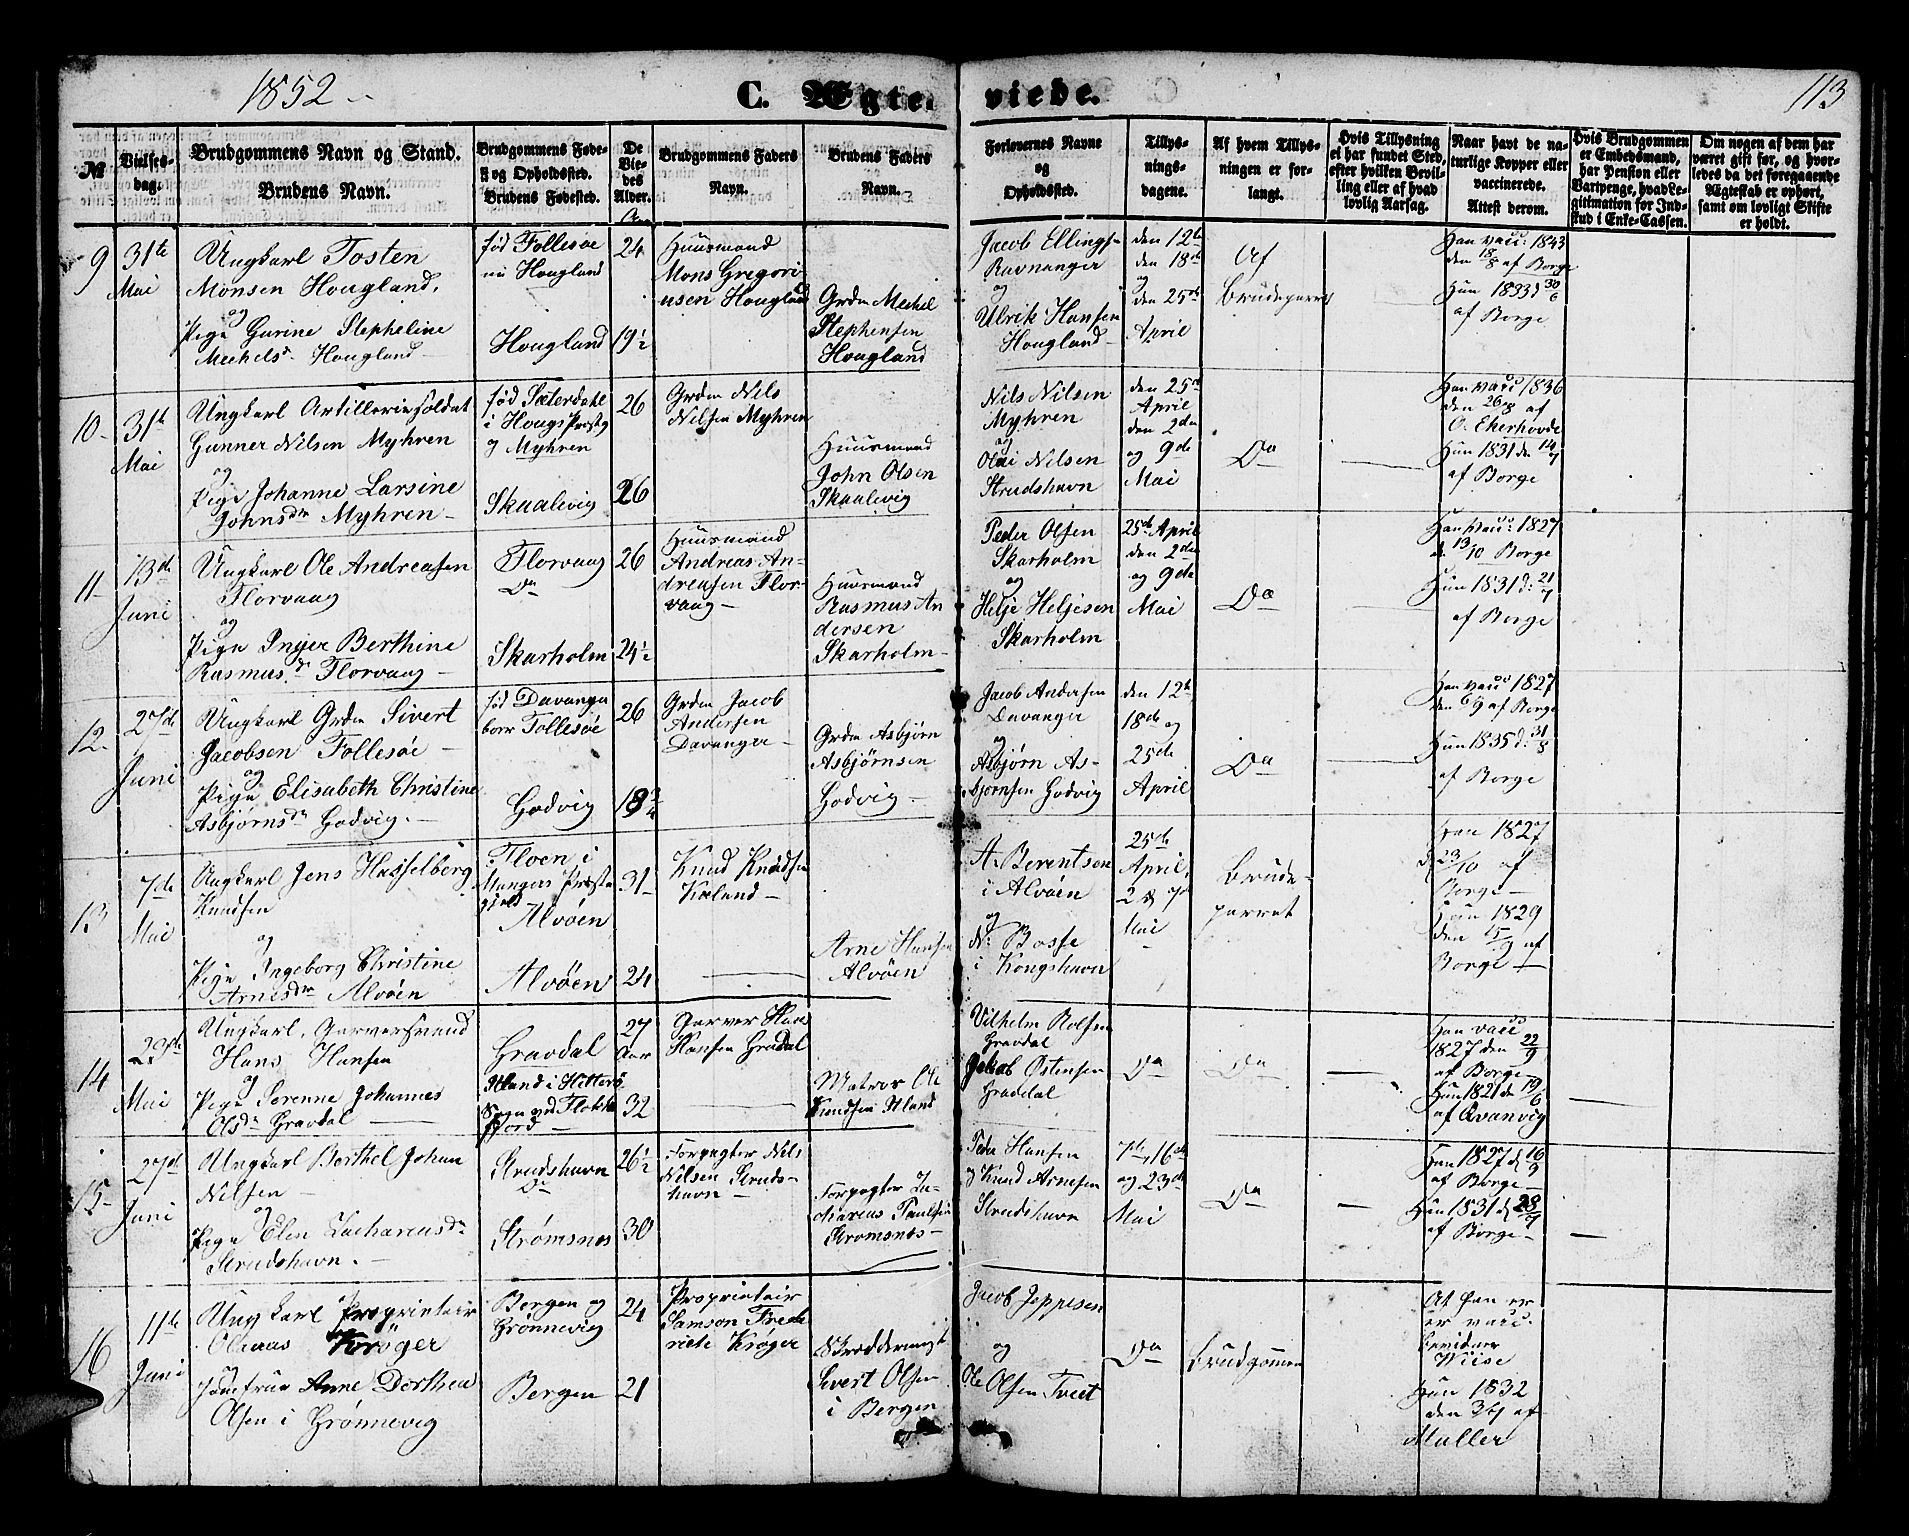 1852
C. Ægte-
viede.
113
№
Vielses-
dag.
Brudgommens Navn og Stand.
Brudens Navn.
Brudgommens Føde-
og Opholdssted.
Brudens Fødested.
De
Vie-
des
Alder.
Brudgommens Faders
Navn.
Brudens Faders
Navn.
Forlovernes Navne
og
Opholdssted.
Tillys-
nings-
dagene.
Af hvem Tillys-
ningen er for-
langt.
Hvis Tillysning
ei har fundet Sted,
efter hvilken Bevil-
ling eller af hvad
lovlig Aarsag.
Naar havt de na-
turlige Kopper eller
vaccinerede.
Attest derom.
Hvis Brudgommen
er Embedsmand,
har Pension eller
Vartpenge, hvad Le-
gitimation for Ind-
skud i Enke-Cassen.
Om nogen af dem har
været gift før, og hvor-
ledes da det foregaaende
Ægteskab er ophørt,
samt om lovligt Skifte
er holdt.
9
31te
Mai
Ungkarl Tosten
Monsen Hougland,
og
Pige Gurine Stepheline
Mechelsdr Hougland
født Follesøe
nu Hougland
Hougland
24
19½
Huusmand
Mons Gregori
usen Hougland
Grdm Mechel
Stephensen
Hougland
Jacob Ellingsn
Ravnanger
og
Ulrik Hansen
Hougland
den 12te
den 18de
og
den 25de
April
Af
Brudeparret
Han vacc: 1843
den 18/8 af Borge
Hun 1833 d 30/6
af Borge
10
31te
Mai
Ungkarl Artilleriesoldat
Gunner Nilsen Myhren
og
Pige Johanne Larsine
Johnsdr Myhren
født Sæterdahl
i Hougs Præstg
og Myhren
Skaalevig
26
26
Grdm Nils
Nilsen Myhren
Huusmand
John Olsen
Skaalevig
Nils Nilsen
Myhren
og
Olai Nilsen
Strudshavn
den 25de
April
den 2den
og 9de
Mai
Do
Han vacc 1836
den 26/8 af
O. Ekerhovde
Hun 1831 den 14/7
af Borge
11
13de
Juni
Ungkarl Ole Andreasen
Florvaag
og
Pige Inger Berthine
Rasmusdr Florvaag
Florvaag
Do
Skarholm
26
24½
Huusmand
Andreas An-
dreasen Flor-
vaag
Huusmand
Rasmus An
dersen
Skarholm
Peder Olsen
Skarholm
og
Helje Heljesen
Skarholm
25de April
den 2den
og 9de
Mai
Do
Han vacc: 1827
d. 13/10 Borge
Hun 1831 d: 21/7
af Borge
12
27de
Juni
Ungkarl Grdm Sivert
Jacobsen Follesøe
og
Pige Elisabeth Christine
Asbjørnsdr Godvig.
født Davanger
boer Follesøe
Godvig
26
18¾
Grdm Jacob
Andersen
Davanger
Grdm Asbjørn
Asbjørnsen
Godvig
Jacob Andersen
Davanger
og
Asbjørn As-
bjørnsen Godvig
den 12te
18de og
25de
April
Do
Han vacc 1827
den 6/9 af Borge
Hun 1835 d: 31/8
af Borge
13
7de
Mai
Ungkarl Jens Hasselberg
Knudsen
og
Pige Ingeborg Christine
Arnesdr Alvøen
Floen i
Mangers Præste
gjeld
Alvøen
Alvøen
31
24
Knud Knudsen
Kaland
Arne Hansen
Alvøen
A. Berentsen
i Alvøen
og
N: Basse
i Kongshavn
25de
April,
2 & 7de
Mai
Brude-
parret
Han 1827
d 23/10 af
Borge
Hun 1829
den 15/9 af
Borge
14
Mai
Ungkarl, Garversvend
Hans Hansen
og
Pige Serenne Johannes
Olsdr Gravdal
Gravdal
Aland i Hitterø
Sogn ved Flekke
fjord
27
Aar
32
Garver Hans
Hansen Gravdal
Matros Ole
Knudsen Aland
Vilhelm Rolfsen
Gravdal
Jakob Ostensen
Gravdal
Do
Do
Han vacc
1827 den 22/9
af Borge
Hun 1821 den 19/6
af Qvanvig
15
27de
Juni
Ungkarl Berthel Johan
Nilsen
og
Pige Elen Zachariasdr
Strudshavn.
Strudshavn
Do
Strømsnes
26½
30
Forpagter Nils
Nilsen Struds-
havn
Forpagter Za-
charias Paulsen
Strømsnes
Peder Hansen
og Knud Arnesen
Strudshavn
7de, 16de
og 23de
Mai
Do
Han 1827 d 16/9
af Borge
Hun 1831 d 28/7
af Borge
16
11te
Juni
Ungkarl Proprietair
Krøger
og
Jomfrue Anne Dorthea
Olsen i Grønnevig
Bergen og
Grønnevig
Bergen
24
21
Proprietair
Samson Fred
rich Krøger
Skreddermest
Sivert Olsen
i Bergen
Jacob Jeppesen
og
Ole Olsen Tveit
Do
Brudgomen
At han er
er vacc.
bevidner
Wiise
Hun 1832
den 3/7 af
Møller